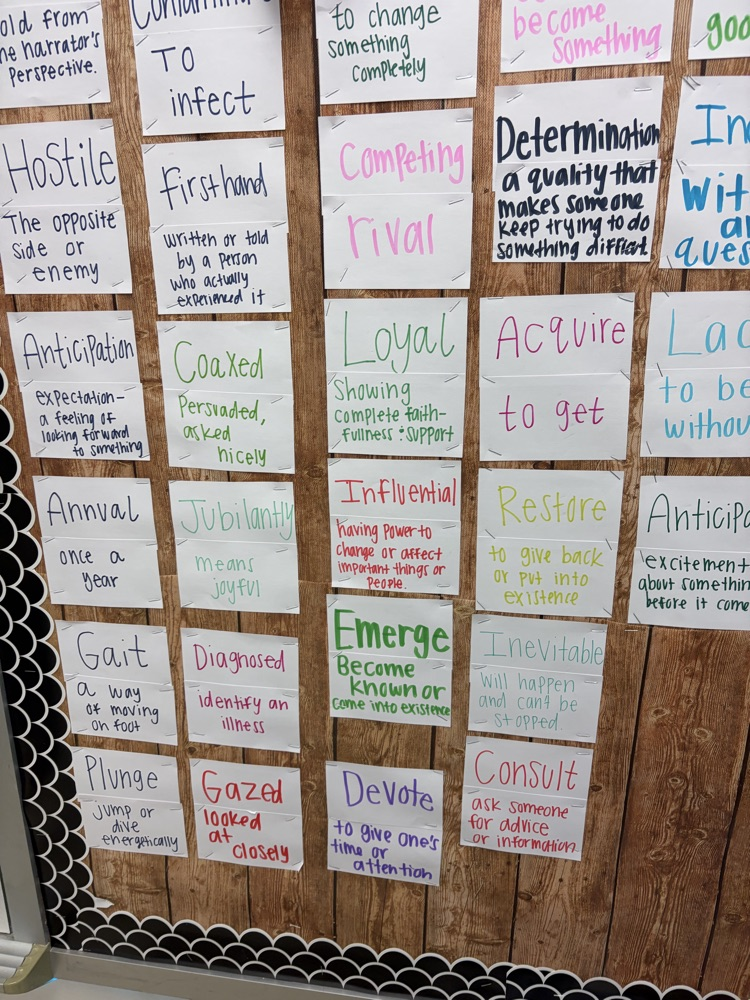 old from
narrator's
Perspective.
To
infect
to change
something
completely
become
something
Hostile
The opposite
side or
enemy
firsthand
written or told
by a person
who actually
experienced it
Competing
rival
Determination
a quality that
makes someone
keep trying to do
something difficult.
In
Anticipation
expectation-
a feeling of
looking forward
to something
Coaxed
Persuaded,
asked
nicely
Loyal
Showing
complete faith-
fullness & support
Acquire
to get
Lac
to be
withou
Annual
once a
year
Jubilantly
means
joyful
Influential
having power to
change or affect
important things or
people.
Restore
to give back
or put into
existence
Anticipa
excitement
about somethin
before it come
Gait
a way
of moving
on foot
Diagnosed
identify an
illness
Emerge
Become
known or
come into existence
Inevitable
will happen
and can't be
stopped.
Plunge
Jump or
dive
energetically
Gazed
looked
at
closely
Devote
to give one's
time or
attention
Consult
ask someone
for advice
or information